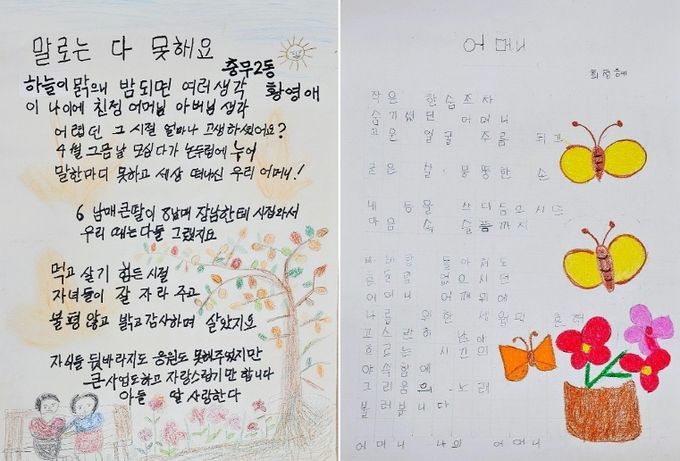 말로는 다 못해요
충무2동
황영애
하늘이 맑으니 밤되면 여러생각
이 나이에 친정 어머님 아버님 생각
어렵던 그 시절 얼마나 고생하셨어요?
4월 그믐날 모심다가 논두렁에 누어
말한마디 못하고 세상 떠나신 우리 어머니!
6 남매 큰딸이 8남매 장남한테 시집와서
우리 때는 다들 그랬지요
먹고 살기 힘든 시절
자녀들이 잘 자라 주고
불평 않고 밝고 감사하며 살았지요
자식들 뒷바라지도 응원도 못해주었지만
큰 사업도하고 자랑스럽기만 합니다
아들 딸 사랑한다
어머니
작은 한숨조차
숨기셨던 어머니
고운 얼굴 주름 되고
굳은 살 뭉뚱한 손
내 등을 쓰다듬으시든
마음 속 슬픔까지
없으시던
어머니 어깨위에
나를 위한 세월의 흔적
고스란히 남아
흐르는 시간의
야속함에
그리움의 노래
불러봅니다
어머니 나의 어머니